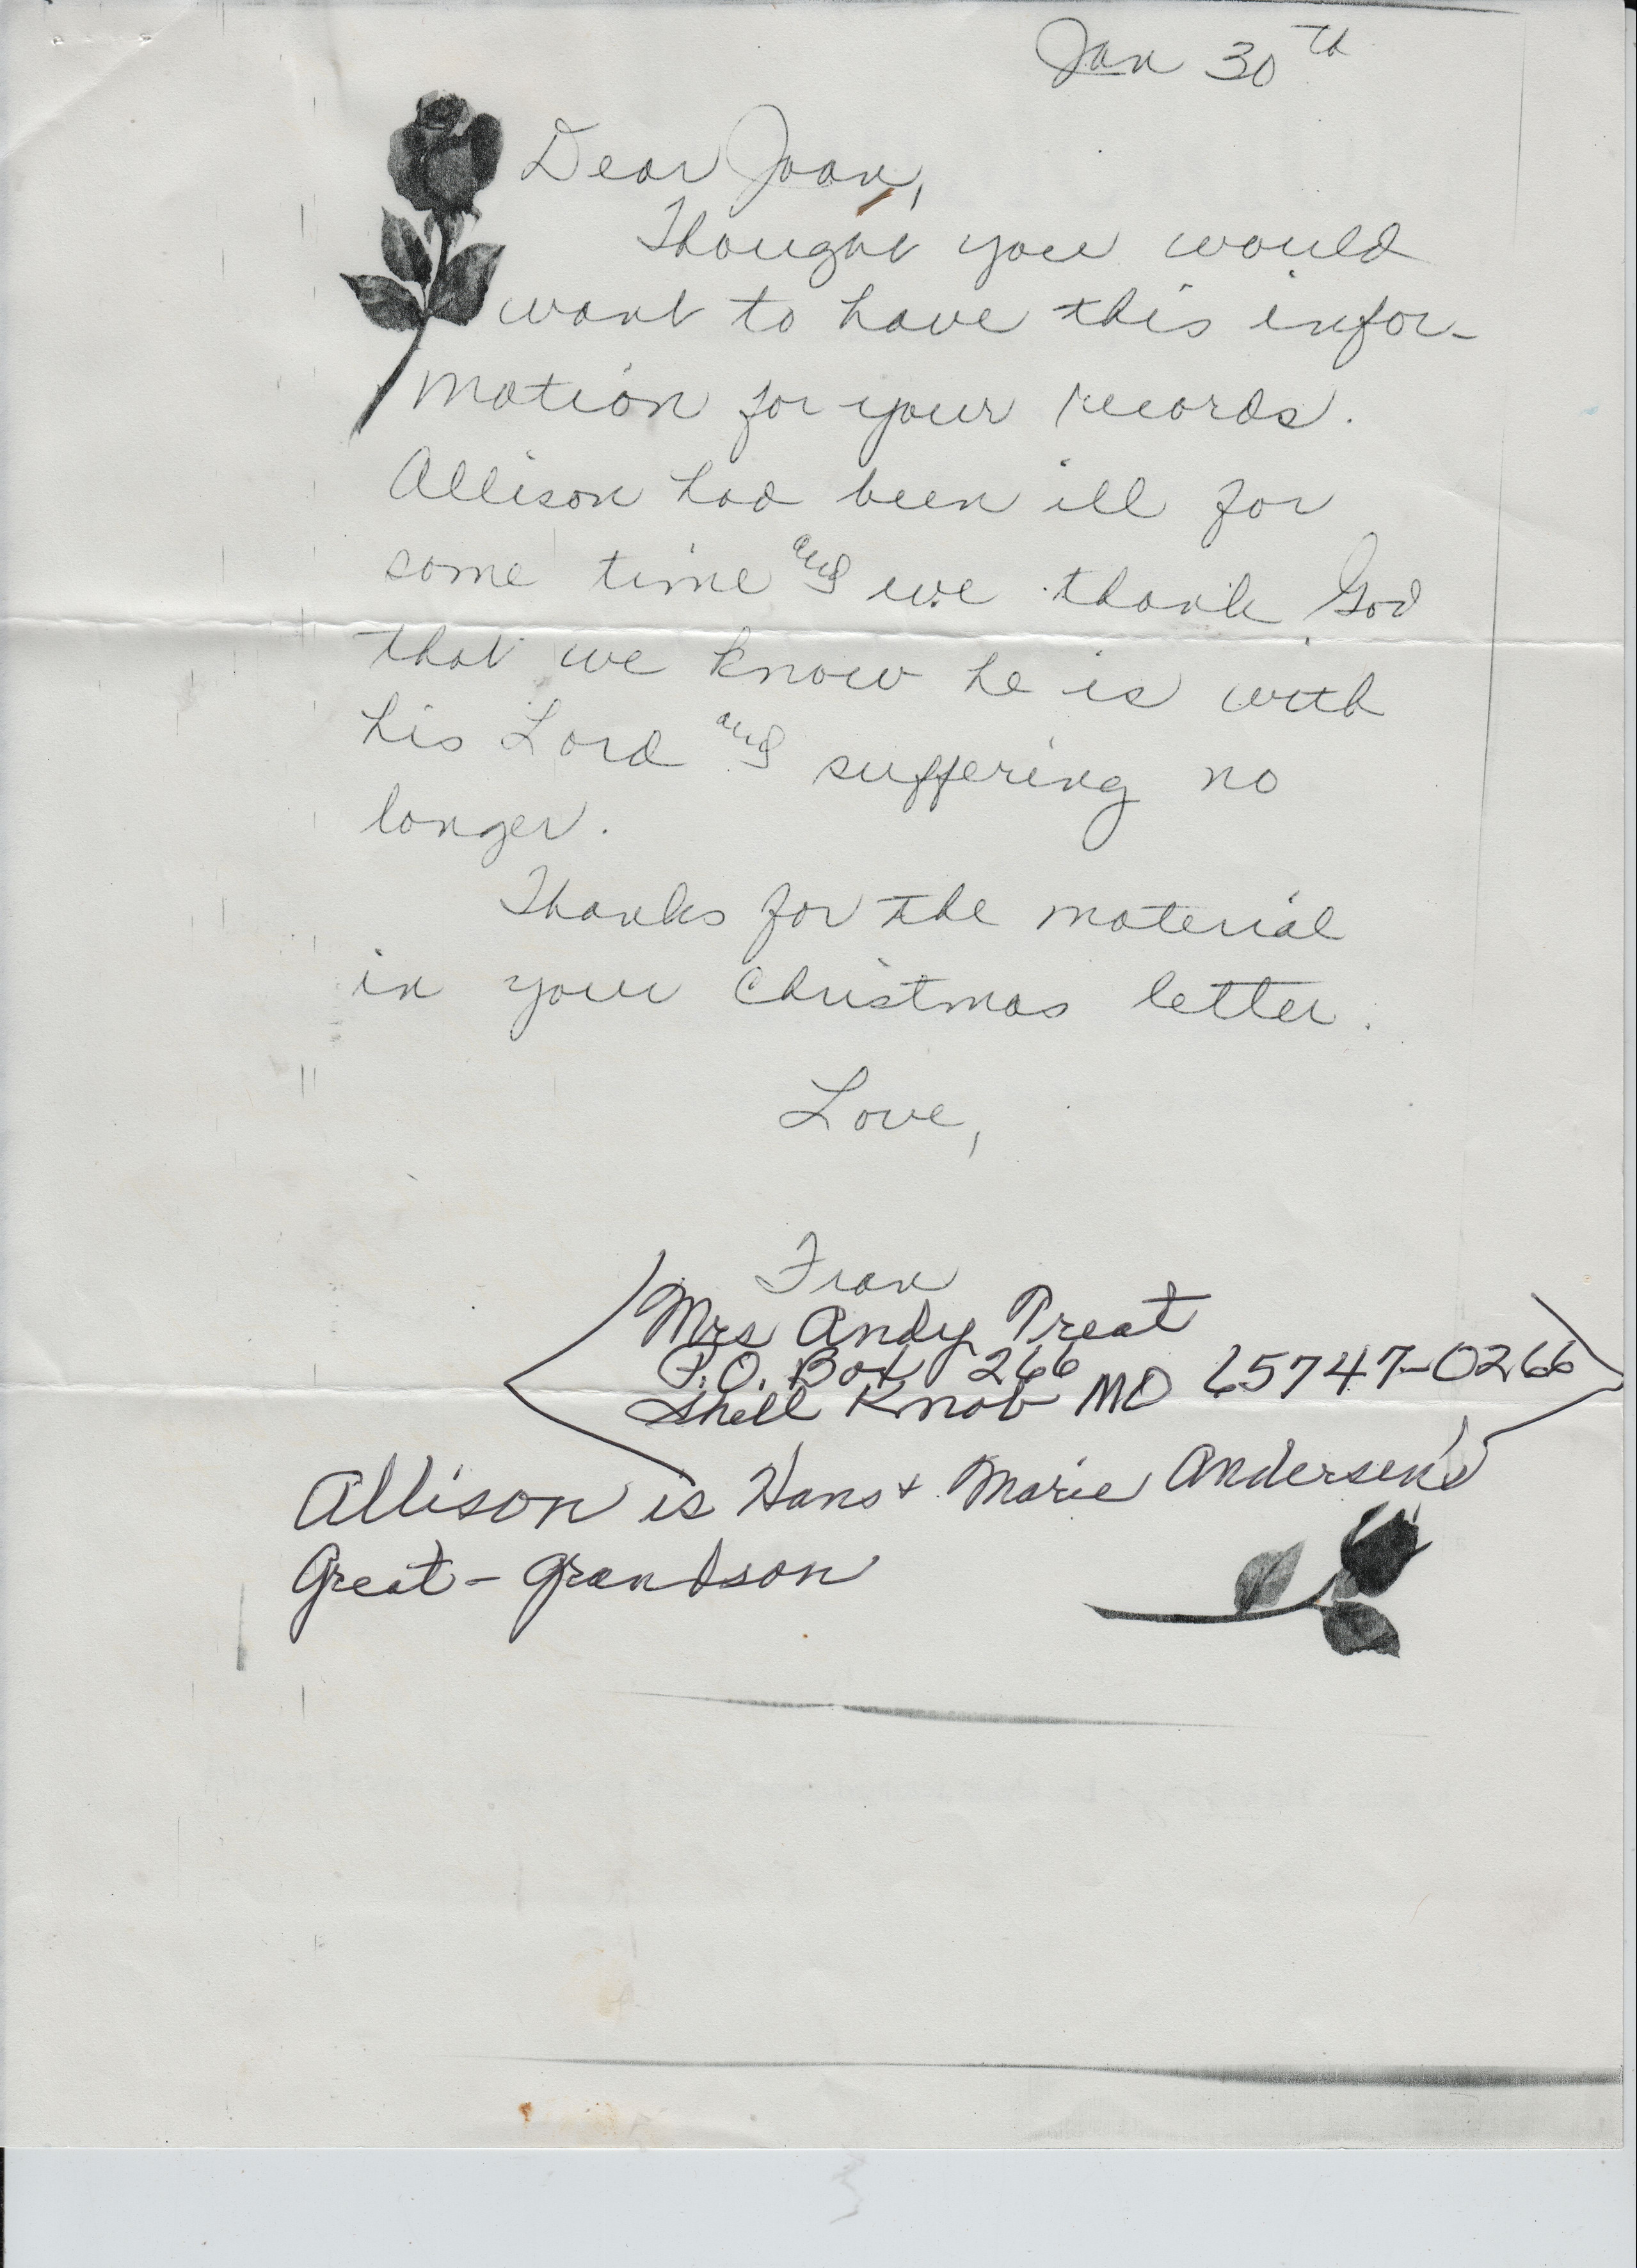 Jan 30th
Dear Joan,
Thought you would
want to have this infor-
mation for your records.
Allison had been ill for
some time and we thank God
that we know he is with
his Lord and suffering no
longer.
Thanks for the material
in your Christmas letter.
Love,
Fran
Mrs Andy Treat
P.O. Box 266
Shell Knob MO 65747-0266
Allison is Hans + Marie Andersen's
Great-grandson